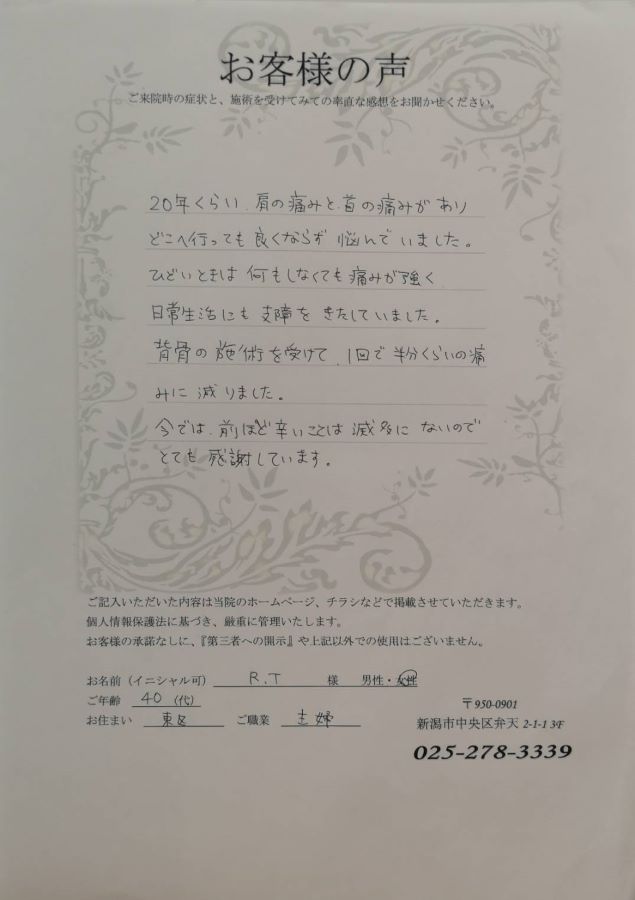 お客様の声
ご来院時の症状と、施術を受けてみての率直な感想をお聞かせください。
20年くらい、肩の痛みと、首の痛みが あり
どこへ行っても 良くならず 悩んで いました。
ひどいときは 何もしなくても 痛みが強く
日常生活にも 支障を きたしていました。
背骨の 施術を受けて、1回で 半分くらいの痛
みに 減りました。
今では、前ほど辛いことは 滅多に ないので
とても 感謝しています。
ご記入いただいた内容は当院のホームページ、チラシなどで掲載させていただきます。
個人情報保護法に基づき、厳重に管理いたします。
お客様の承諾なしに、『第三者への開示』や上記以外での使用はございません。
お名前（イニシャル可） R.T 様 男性・女性
ご年齢 40 （代）
お住まい 東区 ご職業 主婦
〒950-0901
新潟市中央区弁天 2-1-1 3F
025-278-3339